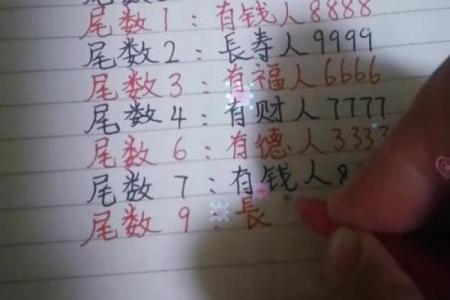 尾数1：有钱人8888
尾数2：長寿人9999
尾数3：有福人6666
尾数4：有财人7777
尾数6：有德人3333
尾数7：有钱人8
尾数9：長